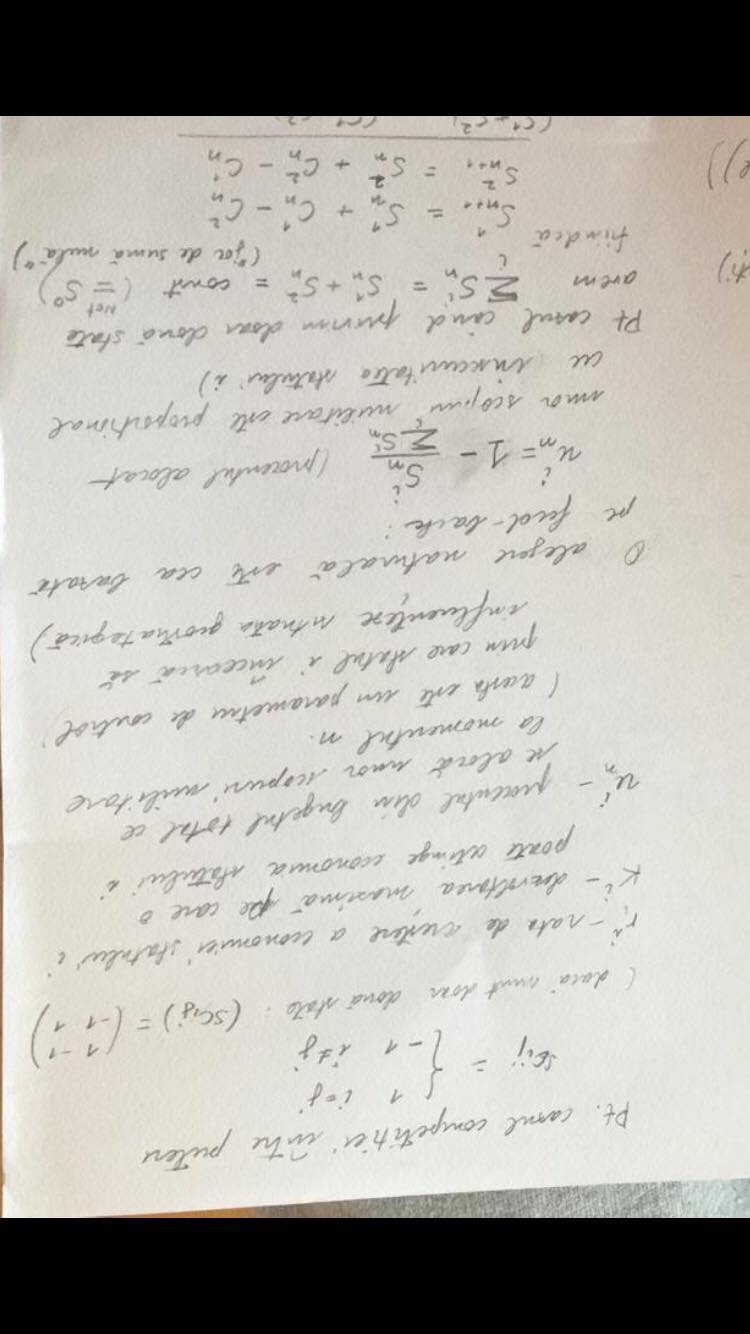 Pt. cazul competitiei între putere
sc_ij = { 1 i=j
-1 i≠j
( dacă sunt doar două state : (sc_ij) = ( 1 -1
-1 1 )
r^i - rata de creștere a economiei statului i
K^i - dezvoltarea maximă pe care o
poate atinge economia statului i
u_n^i - procentul din bugetul total ce
se alocă unor scopuri militare
la momentul n.
( acesta este un parametru de control
prin care statul i încearcă să
influențeze situata geostrategică )
O alegere naturală este cea bazată
pe feed-back :
u_n^i = 1 - S_n^i / Σ_i S_n^i ( procentul alocat
unor scopuri militare este proportional
cu insecuritatea statului i )
Pt cazul când privim doar două state
avem Σ_i S_n^i = S_n^1 + S_n^2 = const ( Not = S^0 )
("joc de sumă nulă")
fiindcă
S_{n+1}^1 = S_n^1 + C_n^1 - C_n^2
S_{n+1}^2 = S_n^2 + C_n^2 - C_n^1